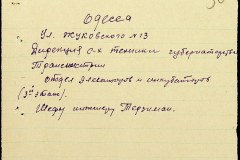 Одесса
Ул. Жуковского №13
Дирекция с-х техники губернаторства
Транснистрии
Отдел элеваторов и инкубаторов
(3й этаж).
Шефу инженеру Терзиман.